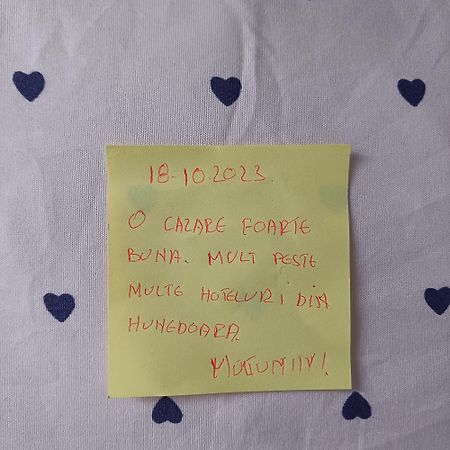 18.10.2023
O CAZARE FOARTE
BUNA. MULT PESTE
MULTE HOTELURI DIN
HUNEDOARA.